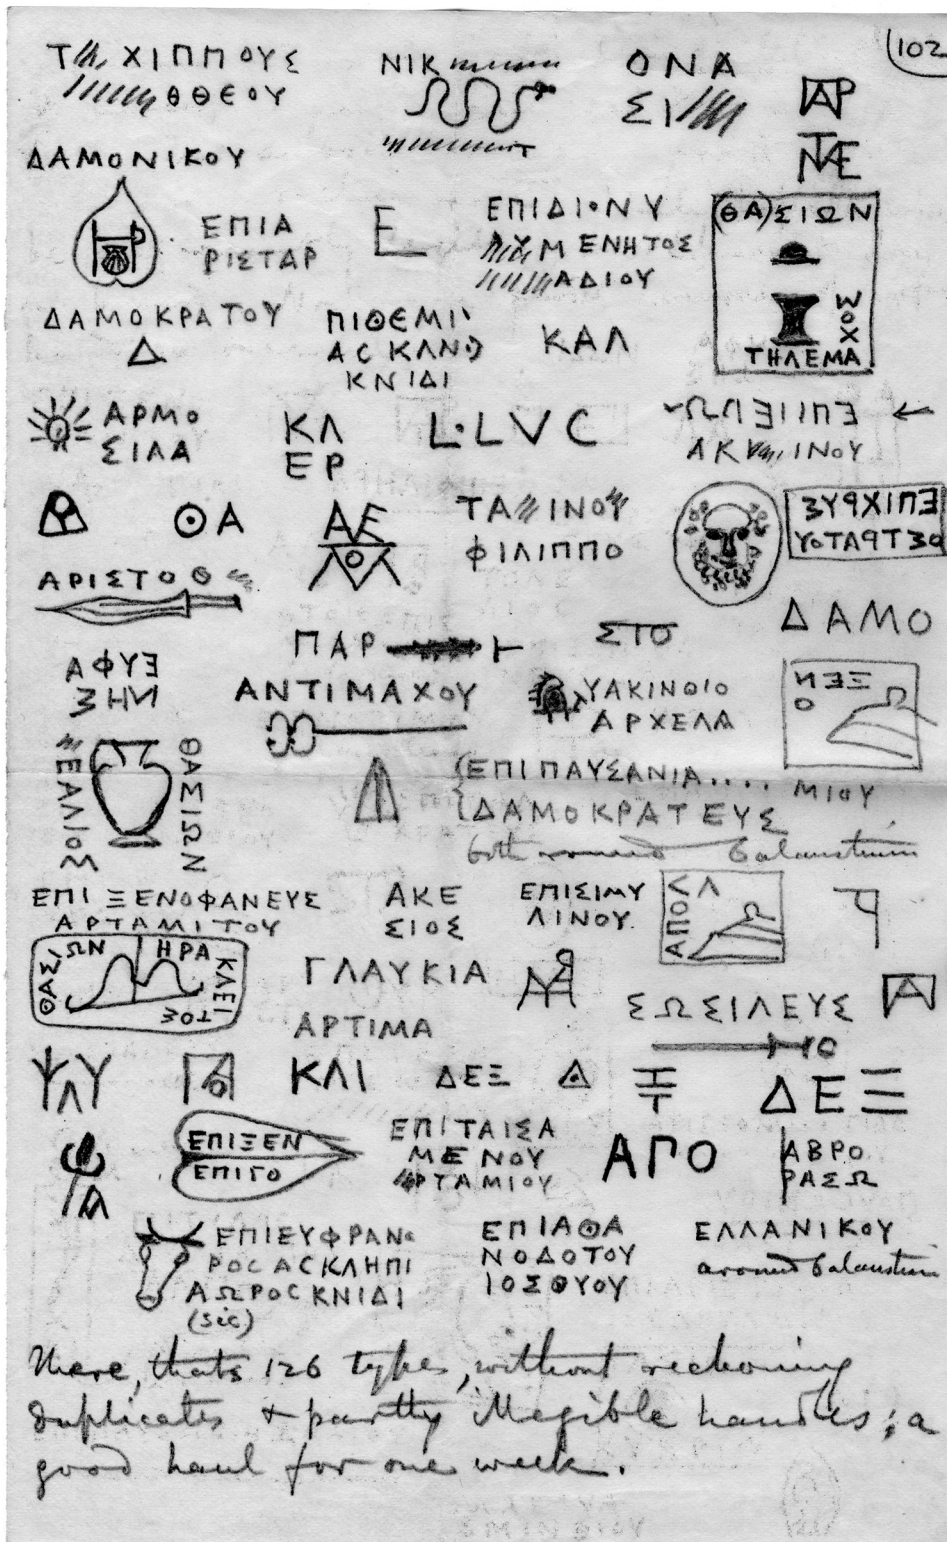 102
Τ ΧΙΠΠΟΥΣ
ΘΘΕΟΥ
ΝΙΚ
Τ
ΟΝΑ
ΣΙ
ΔΑΜΟΝΙΚΟΥ
ΕΠΙΑ
ΡΙΣΤΑΡ
Ε
ΕΠΙΔΙΟΝΥ
ΜΕΝΗΤΟΣ
ΑΔΙΟΥ
(ΘΑ)ΣΙΩΝ
ΤΗΛΕΜΑ
ΧΟΣ
ΔΑΜΟΚΡΑΤΟΥ
Δ
ΠΙΘΕΜΙ
ΑϹΚΛΝ
ΚΝΙΔΙ
ΚΑΛ
ΑΡΜΟ
ΣΙΛΑ
ΚΛ
ΕΡ
L·LVC
ΑΚ ΙΝΟΥ
ΘΑ
ΑΕ
ΤΑ ΙΝΟΥ
ΦΙΛΙΠΠΟ
ΕΠΙΧΡΥΣ
ΟΣΤΡΑΤΟΥ
ΑΡΙΣΤΟΘ
ΔΑΜΟ
ΠΑΡ
ΣΤΟ
ΑΦΥΞ
ΣΗΝ
ΑΝΤΙΜΑΧΟΥ
ΥΑΚΙΝΘΙΟ
ΑΡΧΕΛΑ
ΞΕΝ
Ο
ΕΑΛΙΟΣ
ΘΑΣΙΩΝ
ΕΠΙΠΑΥΣΑΝΙΑ.... ΜΙΟΥ
ΔΑΜΟΚΡΑΤΕΥΣ
both round balaustium
ΕΠΙΞΕΝΟΦΑΝΕΥΣ
ΑΡΤΑΜΙΤΟΥ
ΑΚΕ
ΣΙΟΣ
ΕΠΙΣΙΜΥ
ΛΙΝΟΥ
ΑΠΟΛΛ
ΘΑΣΙΩΝ
ΗΡΑΚΛΕΙ
ΤΟΣ
ΓΛΑΥΚΙΑ
ΑΡΤΙΜΑ
ΣΩΣΙΛΕΥΣ
ΚΛΙ
ΔΕΞ
ΔΕΞ
ΕΠΙΞΕΝ
ΕΠΙΓΟ
ΕΠΙΤΑΙΣΑ
ΜΕΝΟΥ
ΡΤΑΜΙΟΥ
ΑΓΟ
ΑΒΡΟ
ΡΑΣΩ
ΕΠΙΕΥΦΡΑΝΟ
ΡΟϹΑϹΚΛΗΠΙ
ΑΩΡΟϹΚΝΙΔΙ
(sic)
ΕΠΙΑΘΑ
ΝΟΔΟΤΟΥ
ΙΟΣΘΥΟΥ
ΕΛΛΑΝΙΚΟΥ
around balaustium
There, thats 126 types, without reckoning
duplicates & partly illegible handles; a
good haul for one week.